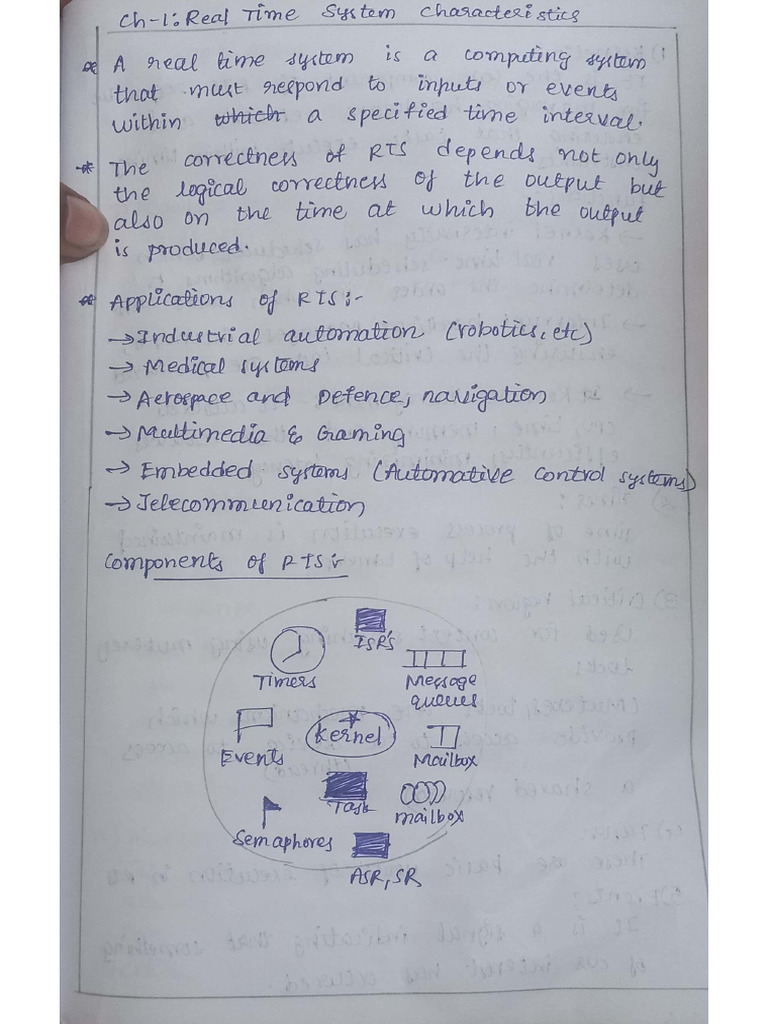 Ch-1: Real Time System Characteristics
* A real time system is a computing system
that must respond to inputs or events
within which a specified time interval.
* The correctness of RTS depends not only
the logical correctness of the output but
also on the time at which the output
is produced.
* Applications of RTS:-
→ Industrial automation (robotics, etc)
→ Medical systems
→ Aerospace and Defence, navigation
→ Multimedia & Gaming
→ Embedded systems (Automative control systems)
→ Telecommunication
Components of RTS:-
ISR's
Timers
Message
queues
Kernel
Events
Mailbox
Task
mailbox
Semaphores
ASR, SR